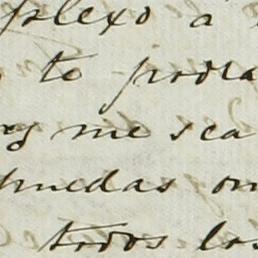 plexo a
to podra
me sea
puedas
todos los